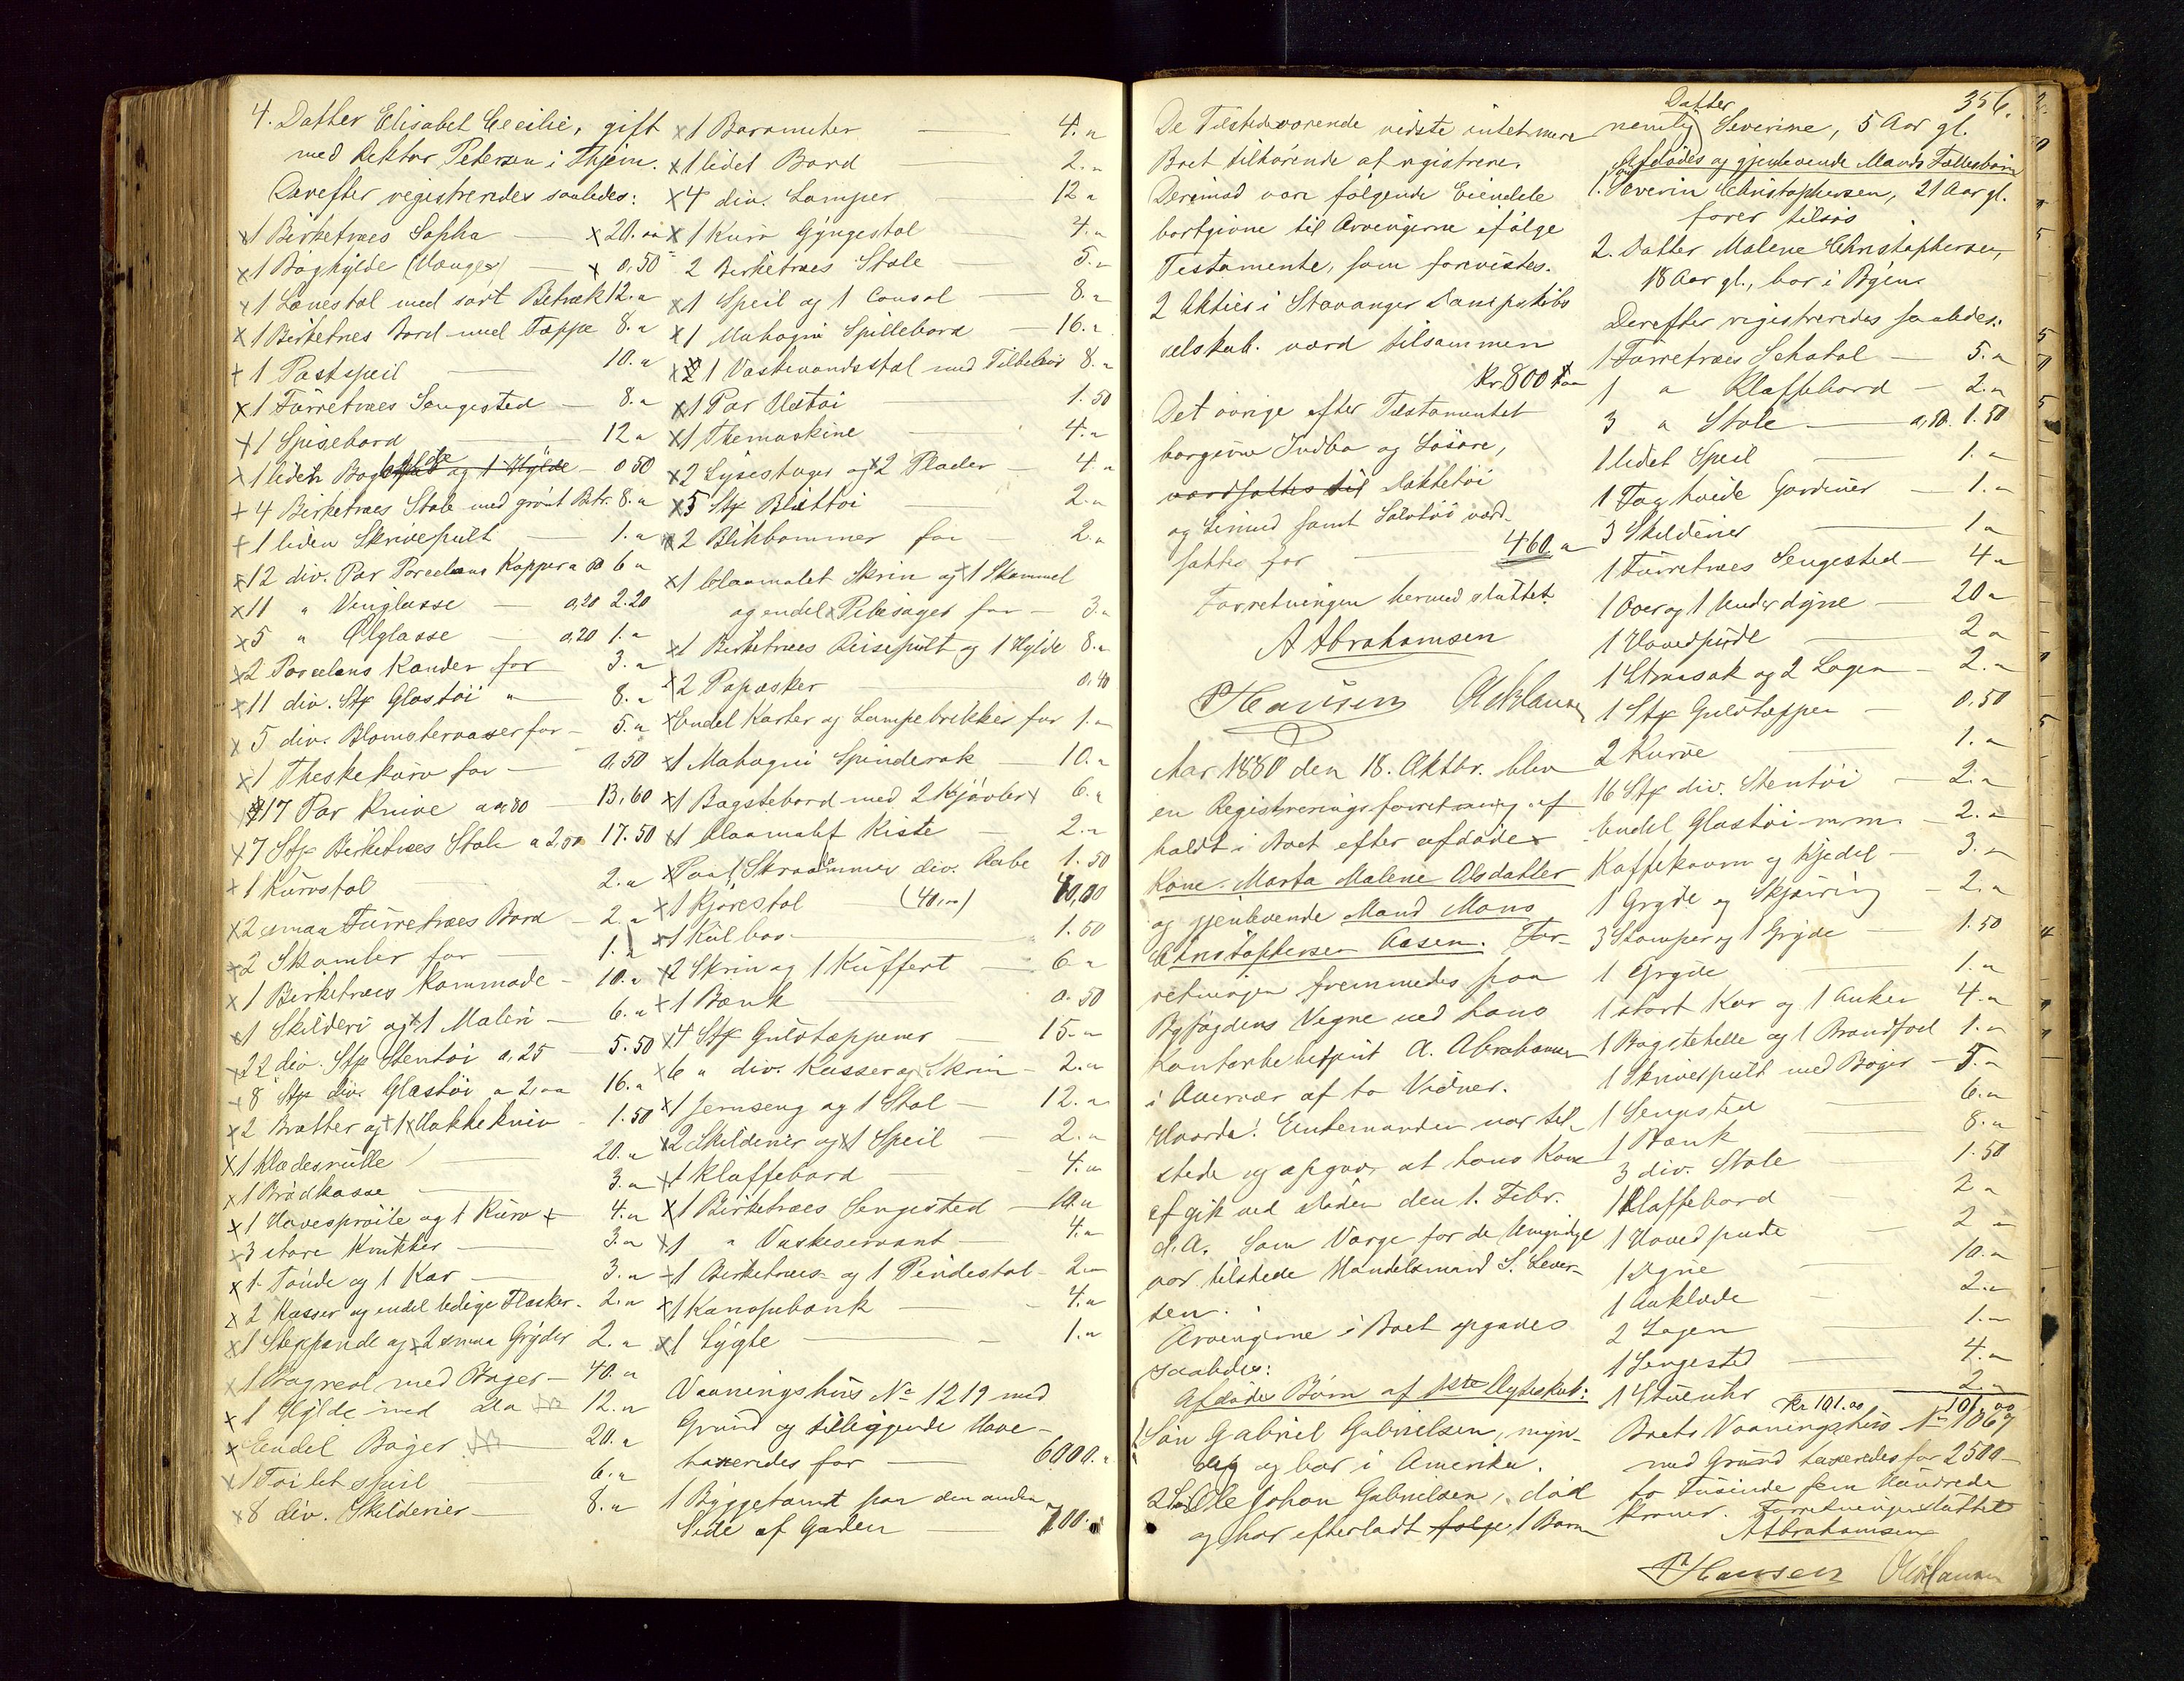 4. Datter Elisabet Cecilie, gift
med Rektor Petersen i Thjem.
Derefter registreredes saaledes:
x1 Birketræes Sopha — x 20. aa
x1 Boghylde — x 0,50
x1 Lænestol med sort Betræk 12. "
x1 Birketræes Bord med Tæppe 8. "
+1 Postspeil — 10. "
x1 Fürretræes Sengested — 8. "
+1 Spisebord — 12 "
x1 liden Boghylde og 1 Hylde — 0 50
+4 Birketræes Stole med grönt Betr. 8. "
+1 liden Skrivepult — 1. "
x12 div. Par Porcelæns Kopper 6 "
x11 " Vinglasse — 0,20 2.20
x5 " Ölglasse — 0,20 1. "
x2 Porcelæns Kander for 3. "
x11 div. Stk Glastöi " — 8. "
x5 div. Blomstervaser for — 5. "
x1 Theskekurv for — 0,50
17 Par Knive a 0,80 — 13,60
x7 Stk Birketræes Stole a 2,50 17.50
+1 Kurvstol 2. "
x2 smaa Fürretræes Bord — 2. "
x2 Skamler for — 1. "
x1 Birketræes Kommode — 10. "
x1 Skilderi og x1 Maleri — 6. "
x22 div. Stk Stentöi a, 25 — 5.50
x8 Stk div. Glastöi a 2,00 16. "
x2 Bretter og +1 Hakkekniv — 1.50
x1 Klædesrulle — 20. "
x1 Brödkasse — 3. "
x1 Havespröite og 1 Kurv + 4. "
x3 store Krukker — 3. "
x1 Tönde og 1 Kar — 3. "
x2 Kasser og endel ledige Flasker. 2. "
x1 Stegpande og x2 smaa Gryder 2. "
x1 Bogreol med Bøger — 40. "
x1 Hylde med do 12. "
x Endel Bøger 20. "
x1 Toiletspeil 6. "
x8 div. Skilderier — 8. "
x1 Barometer — 4. "
x1 lidet Bord 2. "
x4 div. Lamper 12 "
x1 Kurv Gyngestol 4. "
2 Birketræes Stole 5. "
x1 Speil og 1 Consol 8. "
x1 Mahogni Spillebord — 16. "
x1 Vaskevandsstol med Tilbehör 8. "
x1 Par Uldtøi 1. 50
x1 Themaskine 4. "
x2 Lysestager og x2 Plader — 4. "
x5 Stk Bliktöi 2. "
x2 Blikbommer for 2. "
x1 blaamalet Skrin og x1 Skammel
og endel x Pibesager for — 3. "
x1 Birketræes Reisepult og 1 Hylde 8. "
x2 Papæsker 0,40
x Endel Karter og Lampebrikker for 1. "
x1 Mahogni Spinderok — 10. "
x1 Bagstebord med 2 Kjævler x 6. "
x1 blaamalet Kiste 2. "
x Paa 1 Skraakammer div. Aabe 1. 50
x1 Kjørestol (40,00) 40,00
x1 Kulbox 1.50
x2 Skrin og 1 Kuffert — 6 "
x1 Bænk 0. 50
x4 Stk Gulvtæpper — 15. "
x6 " div. Kasser og Skrin — 2. "
x1 Jernseng og 1 Stol — 12. "
x2 Skilderier og x1 Speil — 2. "
x1 Klaffebord 4. "
x1 Birketræes Sengested — 10. "
x1 " Vaskeservant — 4. "
x1 Birketræes og 1 Pindestol 2. "
x1 Kanapebænk 4. "
x1 Lygte 1. "
Vaaningshus No 1219 med
Grund og tilliggende Have
taxeredes for — 6000. "
1 Byggetomt paa den anden
Side af Gaden — 700. "
De Tilstedeværende vidste intet mere
Boet tilhörende at registrere.
Derimod var følgende Eiendele
bortgivne til Arvingerne ifölge
Testamente, som forevistes.
2 Aktier i Stavanger Dampskibs
selskab. værd tilsammen
Kr 800 "
Det övrige efter Testamentet
borgivne Indbo og Lösöre,
værdsattes til Dækketöi
og Linned samt Sölvtöi værd-
sattes for — 460. "
Forretningen hermed sluttet.
A Abrahamsen
P Hansen
Aar 1880 den 18. Oktbr. blev
en Registreringsforretning af-
holdt i Boet efter afdøde
Kone Marta Malene Olsdatter
og gjenlevende Mand Mons
Christophersen Aasen. For-
retningen fremmedes paa
Byfogdens Vegne ved hans
Kontorbetjent A. Abrahamsen
i Overvær af to Vidner.
Hvorda: Enkemanden var til-
stede og opgav, at hans Kone
afgik ved döden den 1. Febr.
d. A. Som Værge for de Umyndige
var tilstede Handelsmand S. Sever-
sen.
Arvingerne i Boet opgaves
saaledes:
Afdödes Börn af 1ste Ægteskab:
1. Sön Gabriel Gabrielsen, myn-
dig og bor i Amerika.
2. Sön Ole Johan Gabrielsen, död
og har efterladt følge, 1 Barn
356.
nemlig Datter Severine, 5 Aar gl.
Afdödes og gjenlevende Mands Fællesbörn
1. Sön Severin Christophersen, 21 Aar gl.
farer tilsös
2. Datter Malene Christophersen,
18 Aar gl., bor i Byen.
Derefter registreredes saaledes:
1 Fürretræes Schatol — 5. "
1 " Klaffebord — 2. "
3 " Stole — a, 50. 1.50
1 lidet Speil — 1. "
1 Fag hvide Gardiner — 1. "
3 Skilderier 1 "
1 Fürretræes Sengested — 4 "
1 Over og 1 Underdyne — 20 "
1 Hovedpude 2 "
1 Straasæk og 2 Lagen — 2. "
1 Stk Gulvtæppe — 0,50
2 Kurve 1. "
16 Stk div. Stentöi — 2. "
Endel Glastöi m.m. — 2. "
Kaffekværn og Kjedel — 3. "
1 Gryde og Skjæring — 2. "
3 Stamper og 1 Gryde — 1.50
1 Gryde 1. "
1 stort Kar og 1 Anker 4. "
1 Bagstehelle og 1 Brandfod 1. "
1 Skrivepult med Bøger — 5. "
1 Sengested 6. "
1 Bænk 8. "
3 div. Stole 1.50
1 Klaffebord 2 "
1 Hovedpude 2 "
1 Dyne 10. "
1 Aaklæde 2. "
2 Lagen 1. "
1 Sengested — 4. "
1 Stueuhr 2. "
Kr 101.00 101,00
Boets Vaaningshus No 1067
med Grund taxeredes for 2500 —
to Tusinde fem Hundrede
Kroner. Forretningen sluttet
A Abrahamsen
P Hansen